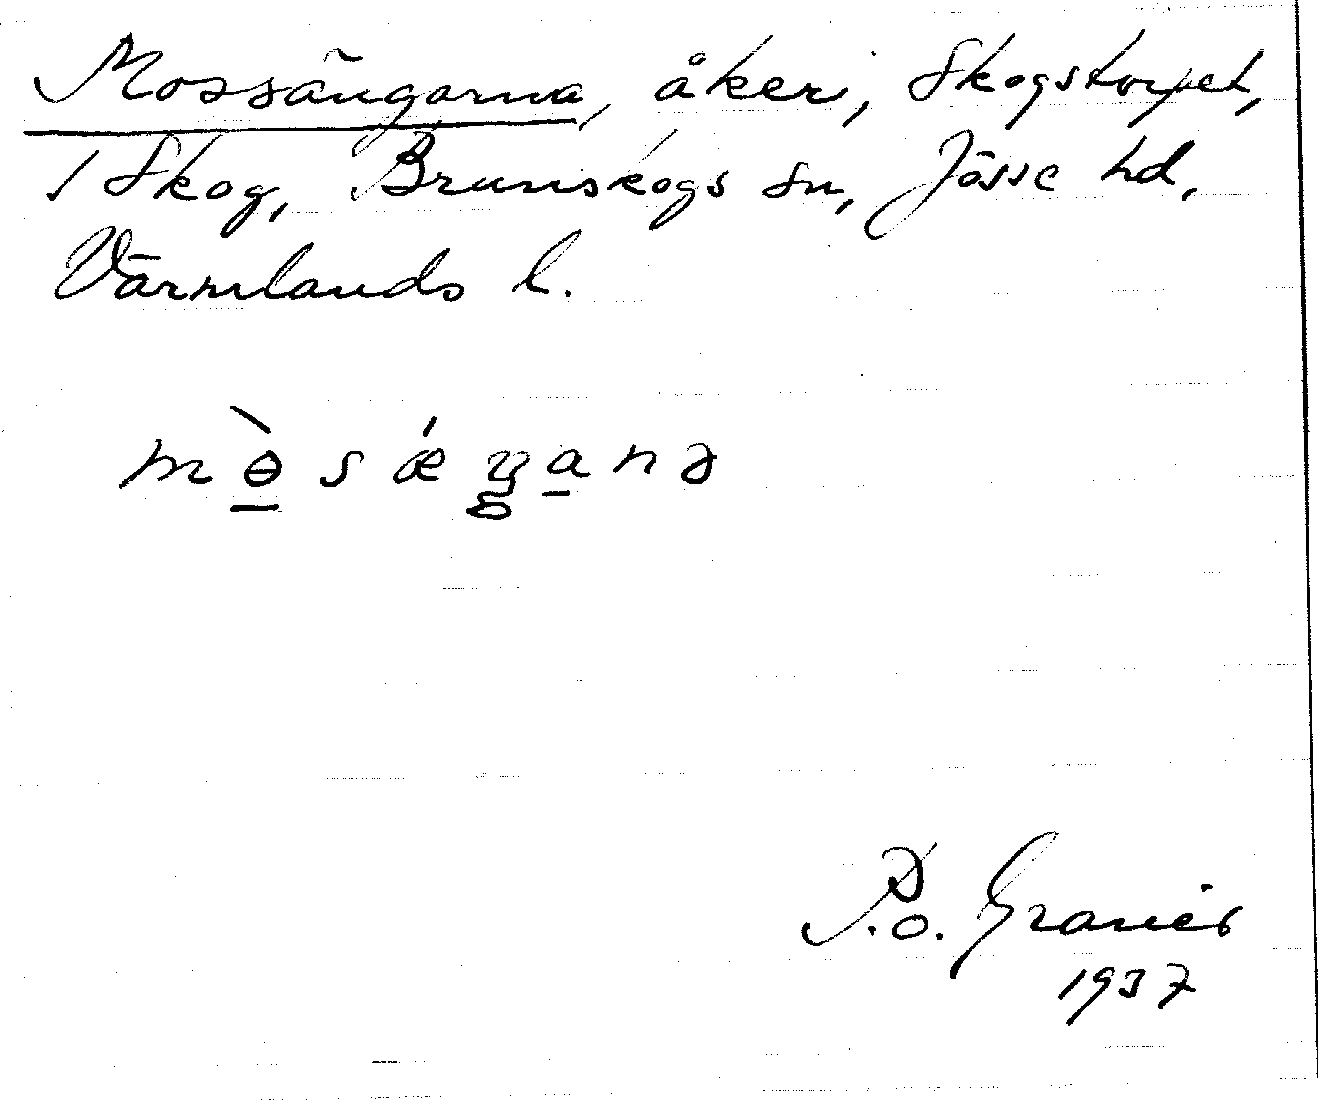 Mossängarna, åker, Skogstorpet,
1 Skog, Brunskogs sn, Jösse hd,
Värmlands l.
mɵ̠̀sǽŋa̠nə
P.O. Granér
1937